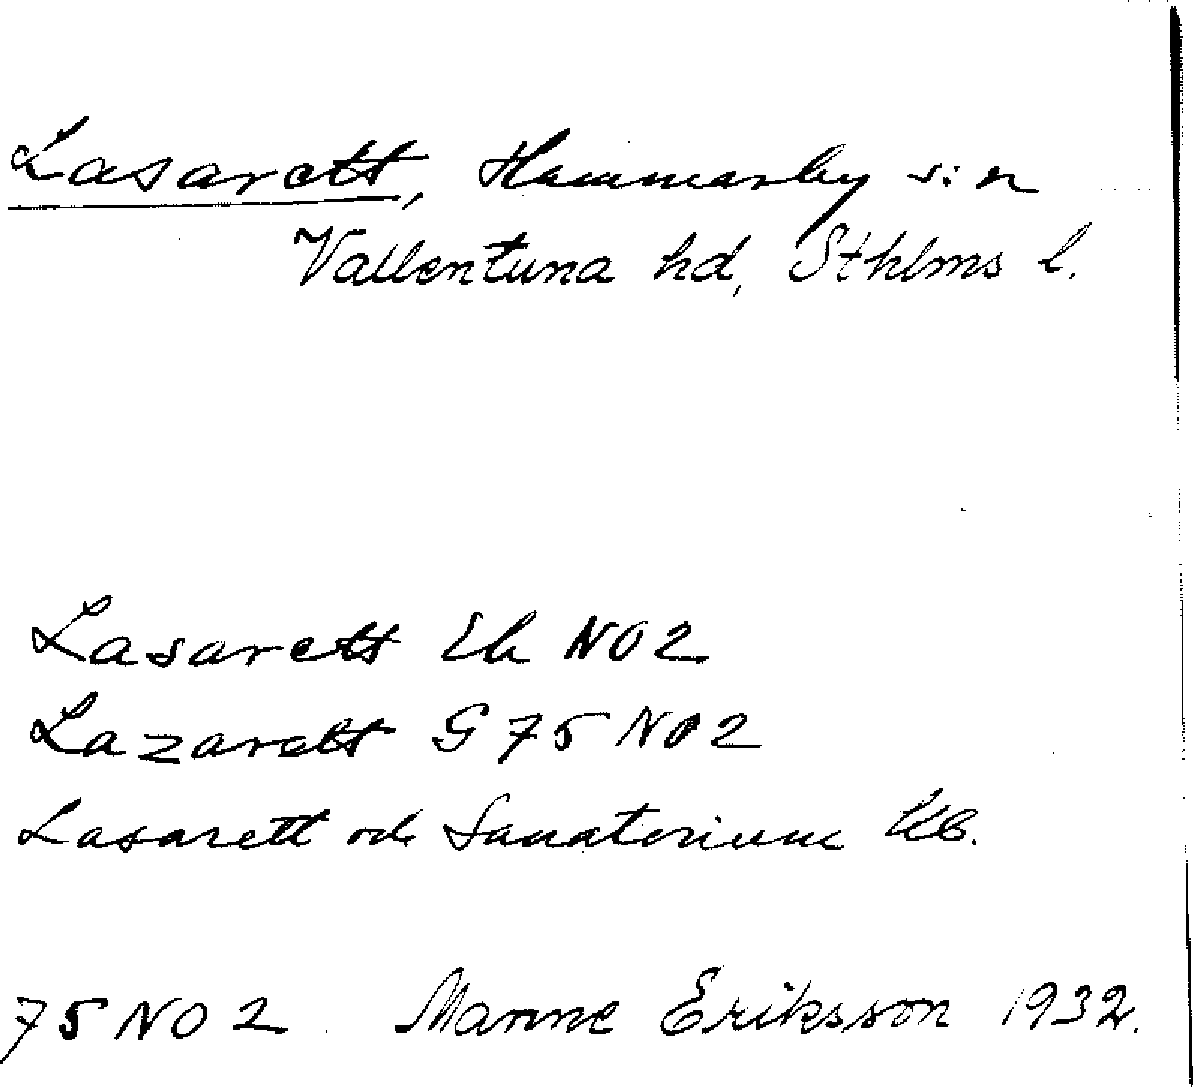 Lasarett, Hammarby s:n
Vallentuna hd, Sthlms l.
Lasarett Ek NO2
Lazarett G 75 NO2
Lasarett och Sanatorium
75 NO 2 Manne Eriksson 1932.